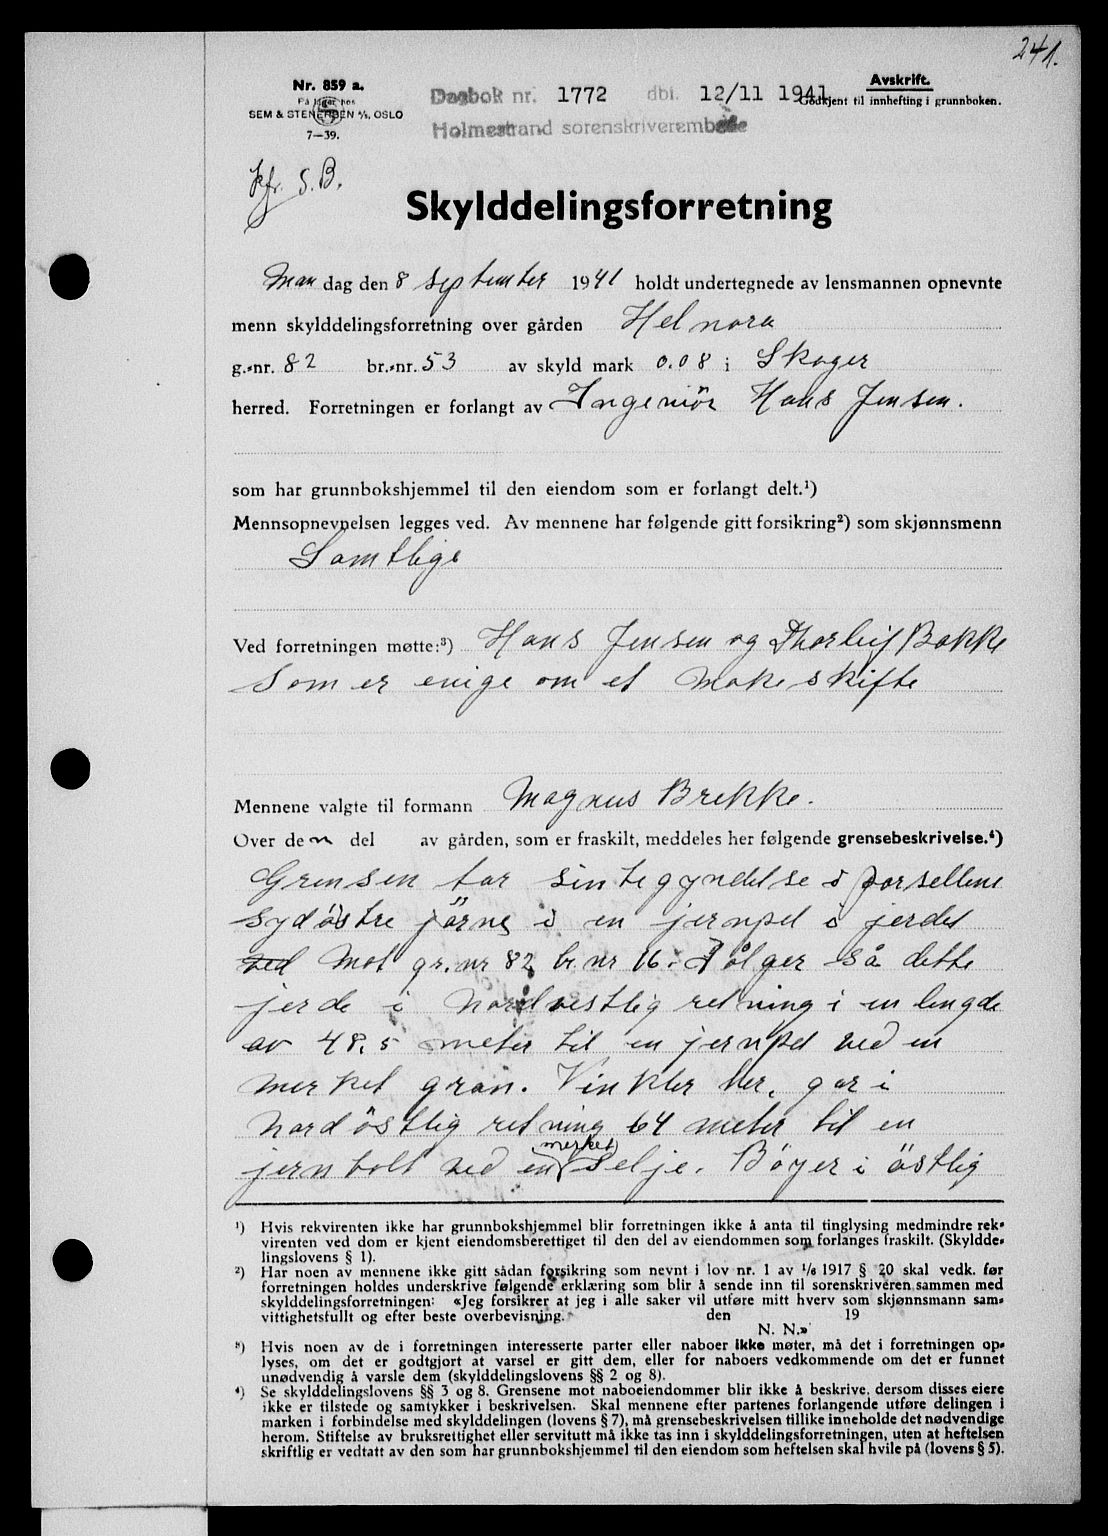 241.
Nr. 859 a.
På lager hos
SEM & STENERSEN A/S, OSLO
7—39.
Dagbok nr. 1772 dbf. 12/11 1941
Holmestrand sorenskriverembede
Avskrift.
Godkjent til innhefting i grunnboken.
Jfr. S.B.
Skylddelingsforretning
Man dag den 8 september 1941 holdt undertegnede av lensmannen opnevnte
menn skylddelingsforretning over gården Helnora
g.-nr. 82 br.-nr. 53 av skyld mark 0.08 i Skoger
herred. Forretningen er forlangt av Ingeniör Hans Jensen.
som har grunnbokshjemmel til den eiendom som er forlangt delt.¹)
Mennsopnevnelsen legges ved. Av mennene har følgende gitt forsikring²) som skjønnsmenn
Samtlige
Ved forretningen møtte:³) Hans Jensen og Thorleif Bakke
Som er enige om et Makeskifte
Mennene valgte til formann Magnus Brekke.
Over den del av gården, som er fraskilt, meddeles her følgende grensebeskrivelse.⁴)
Grensen tar sin begyndelse i parsellens
sydöstre jörne i en jernpel i jerdet
ved Mot gr. nr 82 br. nr 16. Fölger så dette
jerde i Nordvestlig retning i en lengde
av 48,5 meter til en jernpel ved en
merket gran. Vinkler her, gar i
Nordöstlig retning 64 meter til en
jernbolt ved en merket Selje. Böyer i östlig
¹) Hvis rekvirenten ikke har grunnbokshjemmel blir forretningen ikke å anta til tinglysing medmindre rek-
virenten ved dom er kjent eiendomsberettiget til den del av eiendommen som forlanges fraskilt. (Skyldde-
lingslovens § 1).
²) Har noen av mennene ikke gitt sådan forsikring som nevnt i lov nr. 1 av 1/6 1917 § 20 skal vedk. før
forretningen holdes underskrive følgende erklæring som blir å sende inn til sorenskriveren sammen med
skylddelingsforretningen: «Jeg forsikrer at jeg i alle saker vil utføre mitt hverv som skjønnsmann sam-
vittighetsfullt og efter beste overbevisning. den 19
N. N.»
³) Hvis noen av de i forretningen interesserte parter eller naboer ikke møter, må det i forretningen op-
lyses, om det er godtgjort at varsel er gitt dem, eller for naboers vedkommende om det er funnet
unødvendig å varsle dem (skylddelingslovens §§ 2 og 8).
⁴) Se skylddelingslovens §§ 3 og 8. Grensene mot naboeiendommer blir ikke å beskrive, dersom disses eiere
ikke er tilstede og samtykker i beskrivelsen. Skal mennene efter partenes forlangende utføre delingen i
marken i forbindelse med skylddelingen (lovens § 7), må grensebeskrivelsen tillike inneholde det nødvendige
herom. Stiftelse av bruksrettighet eller servitutt må ikke tas inn i skylddelingsforretningen, uten at heftelsen
skriftlig er vedtatt av den som har grunnbokshjemmel til den eiendom som heftelsen skal hvile på (lovens § 5).